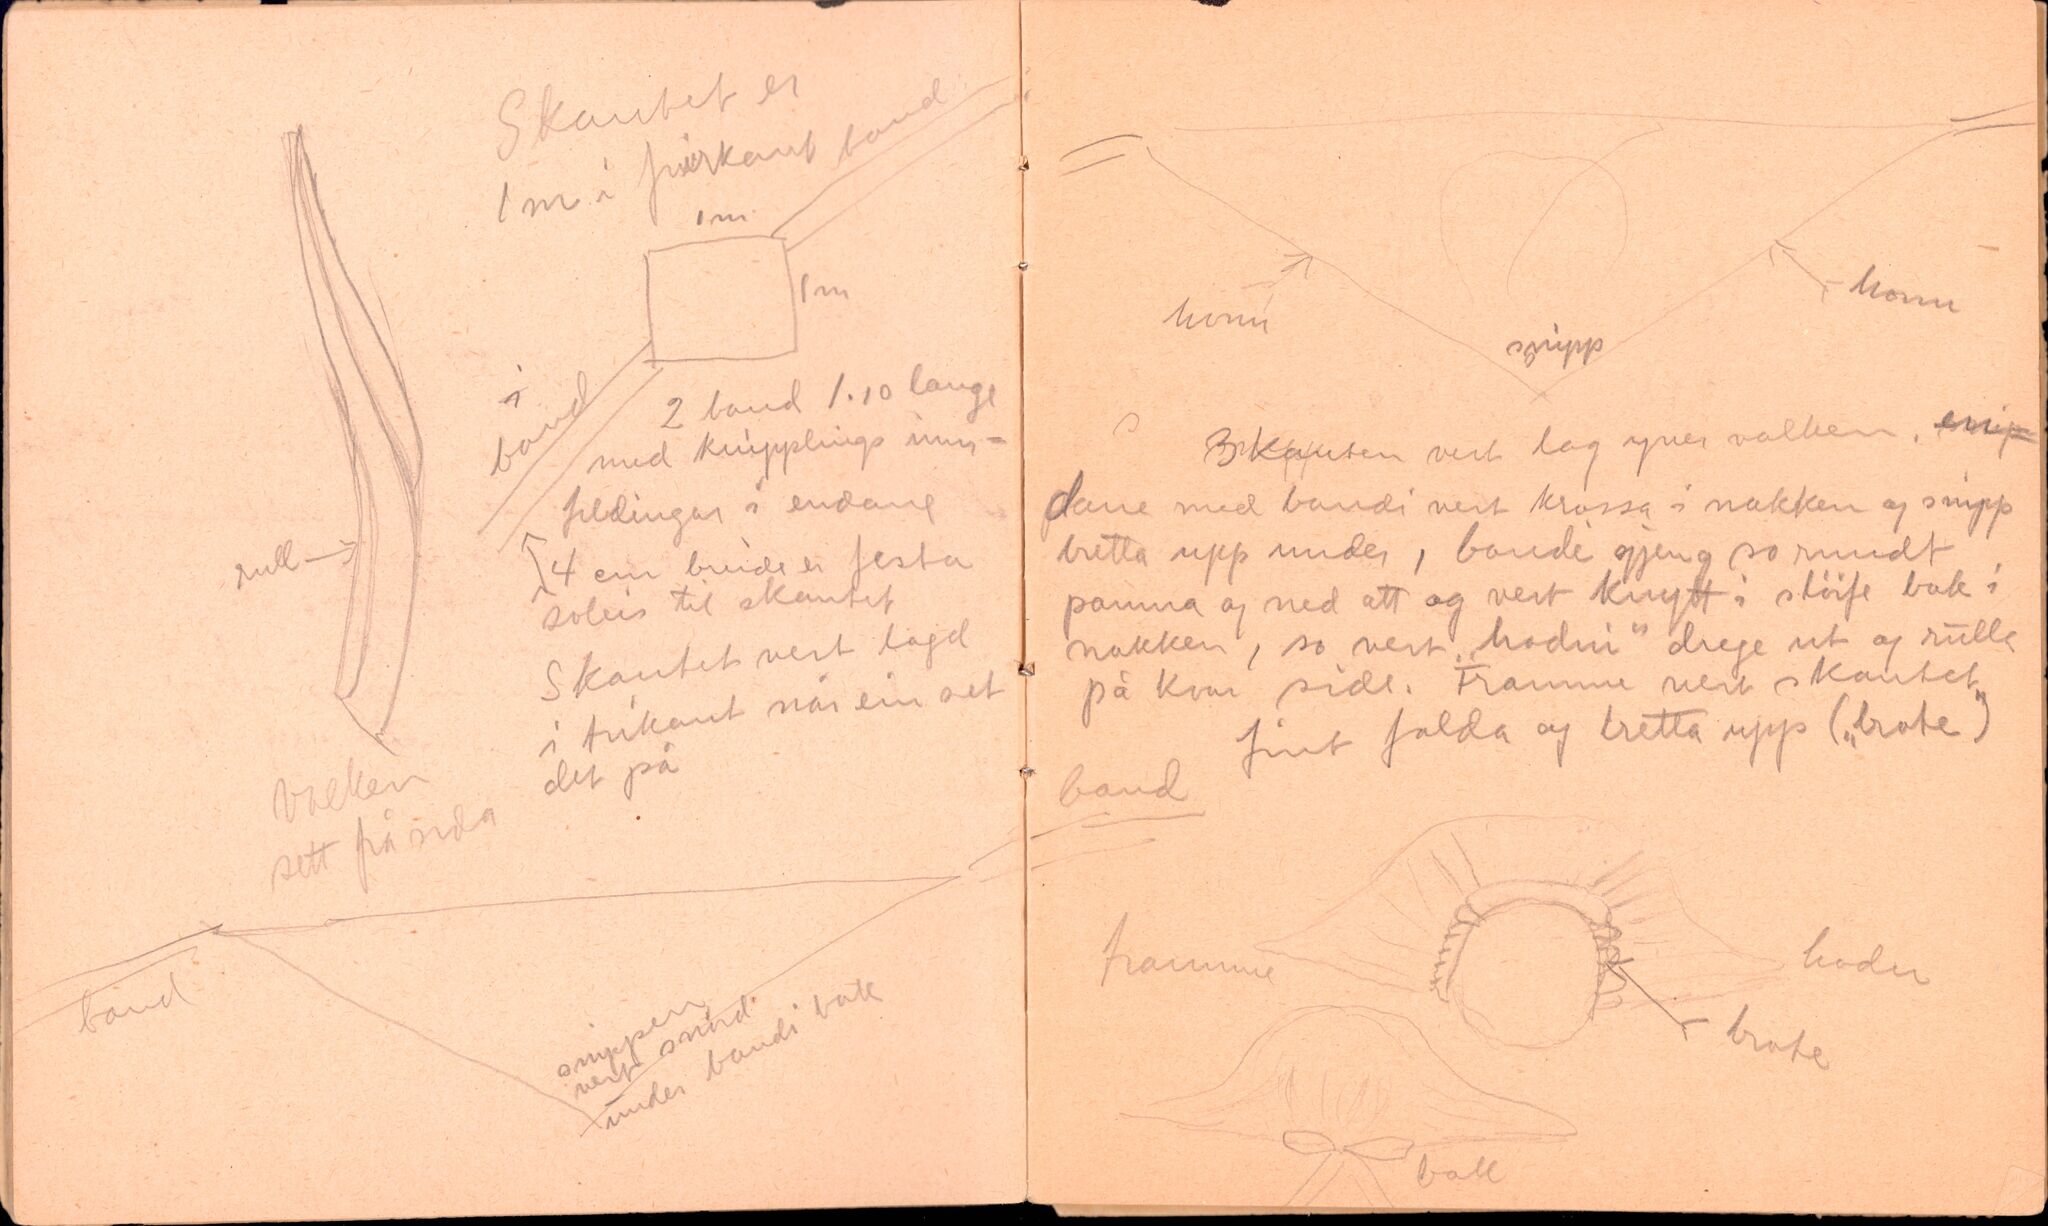 Skautet er
1 m i firkant band
1 m
1 m
rull
i
band
2 band 1.10 lange
med knipplings inn-
feldingar i endane
4 cm breide er festa
soleis til skautet
Skautet vert lagd
i trikant når ein set
det på
Valken
sett frå sida
band
snippen
vert snudd
under bandi bak
horni
horni
snipp
Skauten vert lag yver valken, snip
dane med bandi vert krossa i nakken og snipp
bretta upp under, bandi gjeng so rundt
panna og ned att og vert knytt i slöife bak i
nakken, so vert „hodni“ drege ut og rulla
på kvar side. Framme vert skautet
fint falda og bretta upp („brote“)
band
framme
hodn
brote
bak